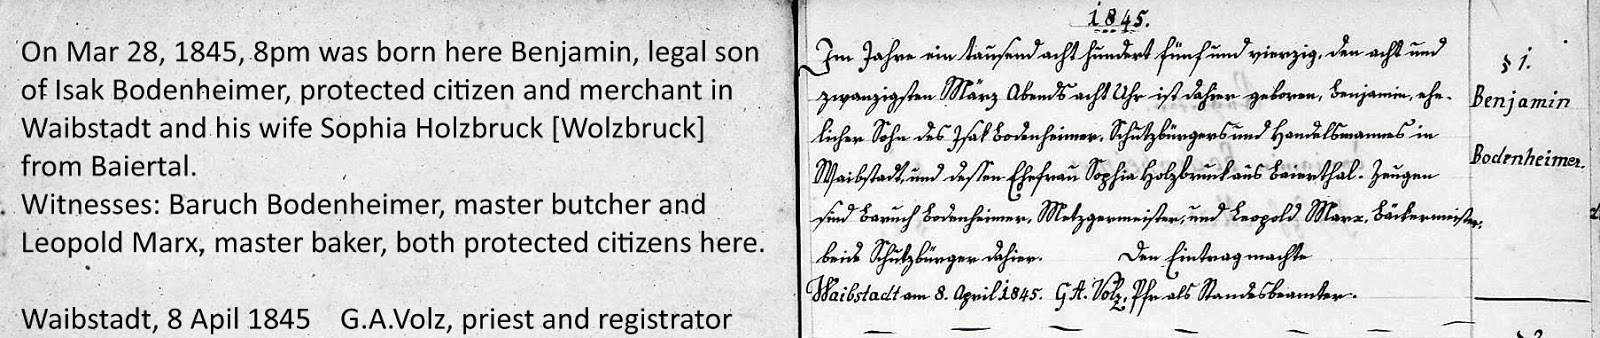 On Mar 28, 1845, 8pm was born here Benjamin, legal son
of Isak Bodenheimer, protected citizen and merchant in
Waibstadt and his wife Sophia Holzbruck [Wolzbruck]
from Baiertal.
Witnesses: Baruch Bodenheimer, master butcher and
Leopold Marx, master baker, both protected citizens here.
Waibstadt, 8 Apil 1845 G.A.Volz, priest and registrator
1845.
Im Jahre ein tausend acht hundert fünf und vierzig, den acht und
zwanzigsten März Abends acht Uhr ist dahier geboren, Benjamin, ehe-
licher Sohn des Isak Bodenheimer, Schutzbürgers und Handelsmannes in
Waibstadt, und dessen Ehefrau Sophia Holzbruck aus Baierthal. Zeugen
sind Baruch Bodenheimer, Metzgermeister, und Leopold Marx, Bäckermeister,
beide Schutzbürger dahier. Den Eintrag machte
Waibstadt am 8. April 1845. G.A. Volz, Pfr als Standesbeamter.
§ 1.
Benjamin
Bodenheimer.